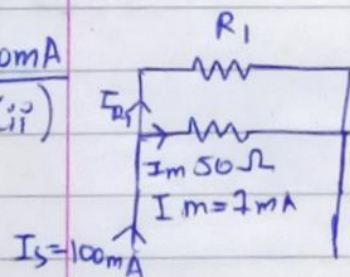 R1
0mA
(ii)
IR1
Im 50 Ω
Im = 7mA
Is = 100mA